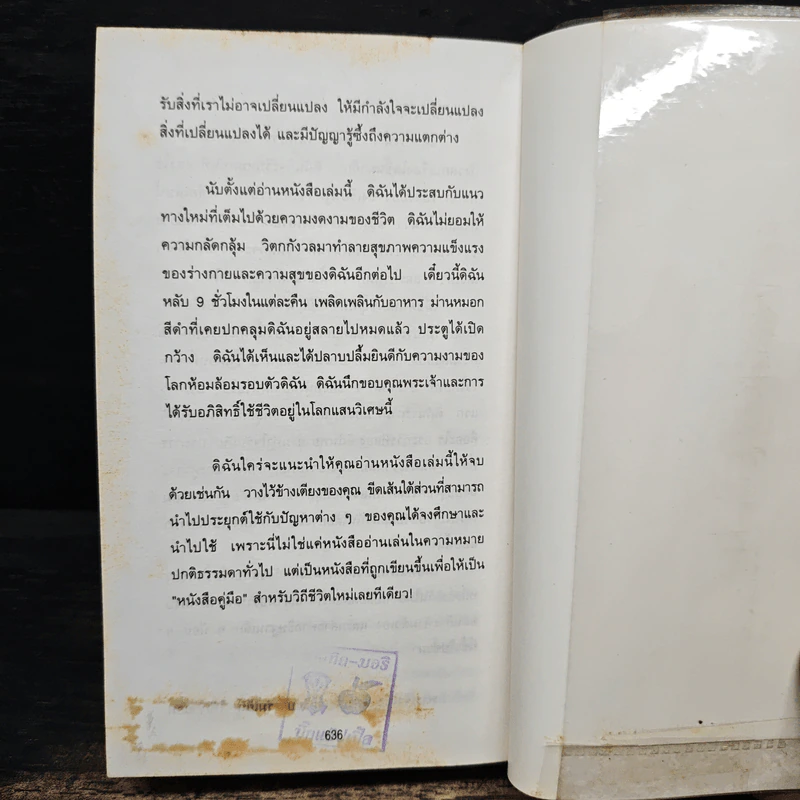 รับสิ่งที่เราไม่อาจเปลี่ยนแปลง ให้มีกำลังใจจะเปลี่ยนแปลง
สิ่งที่เปลี่ยนแปลงได้ และมีปัญญารู้ซึ้งถึงความแตกต่าง
นับตั้งแต่อ่านหนังสือเล่มนี้ ดิฉันได้ประสบกับแนว
ทางใหม่ที่เต็มไปด้วยความงดงามของชีวิต ดิฉันไม่ยอมให้
ความกลัดกลุ้ม วิตกกังวลมาทำลายสุขภาพความแข็งแรง
ของร่างกายและความสุขของดิฉันอีกต่อไป เดี๋ยวนี้ดิฉัน
หลับ 9 ชั่วโมงในแต่ละคืน เพลิดเพลินกับอาหาร ม่านหมอก
สีดำที่เคยปกคลุมดิฉันอยู่สลายไปหมดแล้ว ประตูได้เปิด
กว้าง ดิฉันได้เห็นและได้ปลาบปลื้มยินดีกับความงามของ
โลกห้อมล้อมรอบตัวดิฉัน ดิฉันนึกขอบคุณพระเจ้าและการ
ได้รับอภิสิทธิ์ใช้ชีวิตอยู่ในโลกแสนวิเศษนี้
ดิฉันใคร่จะแนะนำให้คุณอ่านหนังสือเล่มนี้ให้จบ
ด้วยเช่นกัน วางไว้ข้างเตียงของคุณ ขีดเส้นใต้ส่วนที่สามารถ
นำไปประยุกต์ใช้กับปัญหาต่าง ๆ ของคุณได้จงศึกษาและ
นำไปใช้ เพราะนี่ไม่ใช่แค่หนังสืออ่านเล่นในความหมาย
ปกติธรรมดาทั่วไป แต่เป็นหนังสือที่ถูกเขียนขึ้นเพื่อให้เป็น
"หนังสือคู่มือ" สำหรับวิถีชีวิตใหม่เลยทีเดียว!
636